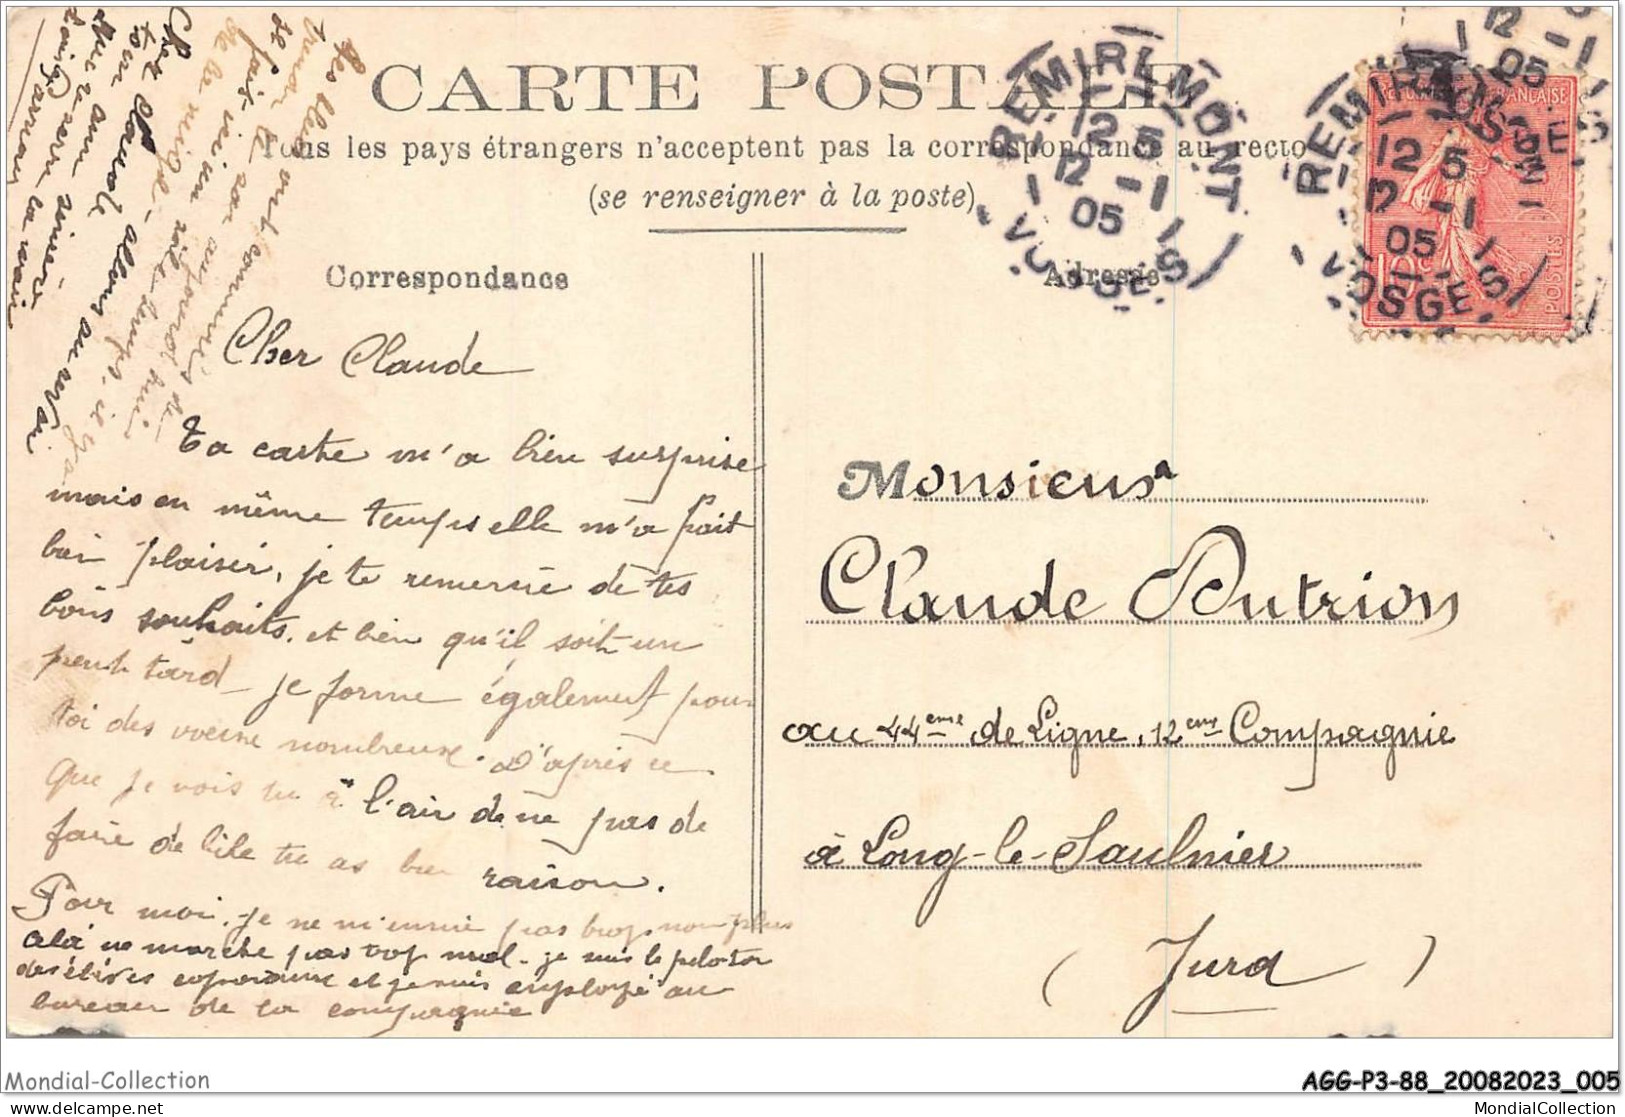 CARTE POSTALE
Tous les pays étrangers n'acceptent pas la correspondance au recto
(se renseigner à la poste)
Correspondance
Adresse
REMIREMONT
12 5
12 -1
05
VOSGES
REMIREMONT
12 5
12 -1
05
VOSGES
12 -1
05
VOSGES
FRANÇAISE
10c
POSTES
Cher Claude
Ta carte m'a bien surprise
mais en même temps elle m'a fait
bien plaisir, je te remercie de tes
bons souhaits. et bien qu'il soit un
peut tard je forme également pour
toi des voeux nombreux. D'après ce
que je vois tu à l'air de ne pas de
faire de bile tu as bien raison.
Pour moi. je ne m'ennuie pas trop non plus
cela ne marche pas trop mal. je suis le peloton
des élèves caporaux et je suis employé au
bureau de la compagnie
Les élèves ont commencés
de la neige
Cher Claude allons au revoir
ton ami
Monsieur
Claude Dutrion
au 44ème de Ligne, 12ème Compagnie
à Long-le-Saulnier
(Jura)
Mondial-Collection
AGG-P3-88_20082023_005
www.delcampe.net
MondialCollection